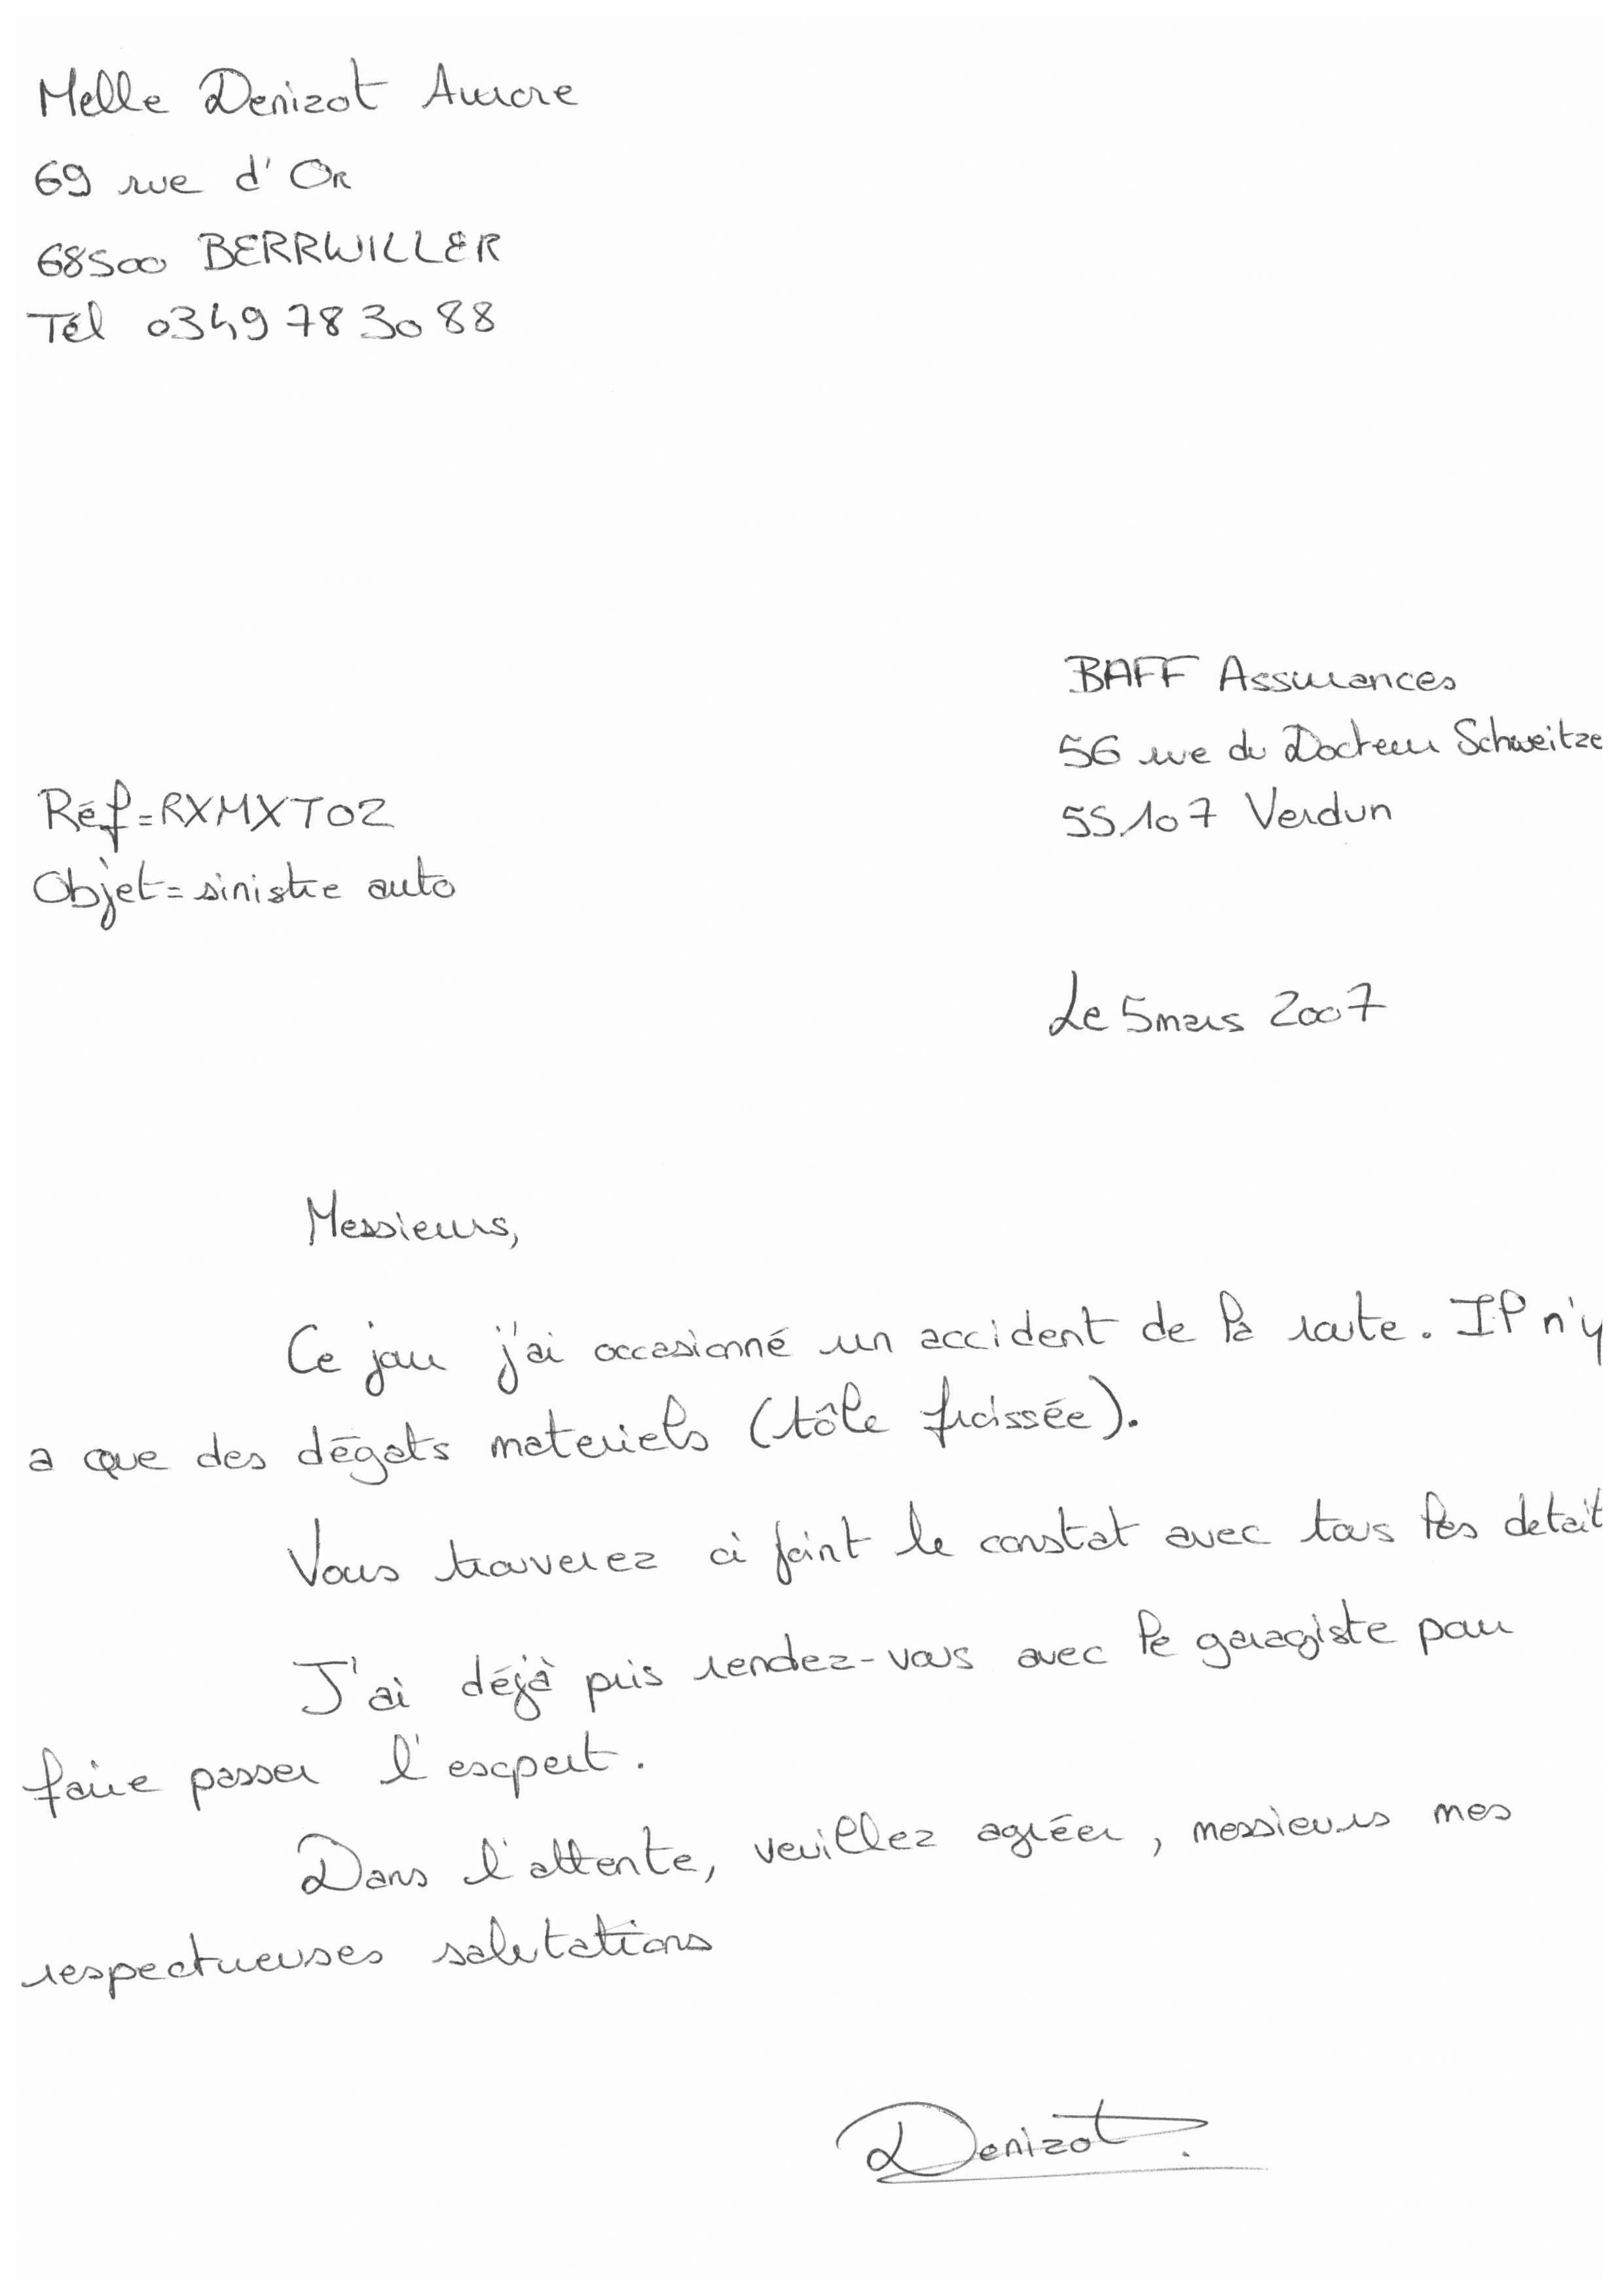 Melle Denizot Aurore
69 rue d'Or
68500 BERRWILLER
Tél 03 49 78 30 88
BAFF Assurances
56 rue du Docteur Schweitze
55107 Verdun
Réf=RXMXT02
Objet=sinistre auto
Le 5 mars 2007
Messieurs,
Ce jour j'ai occasionné un accident de la route. Il n'y
a que des dégats materiels (tôle froissée).
Vous trouverez ci joint le constat avec tous les detail
J'ai déjà pris rendez-vous avec le garagiste pour
faire passer l'expert.
Dans l'attente, veuillez agréer, messieurs mes
respectueuses salutations
Denizot